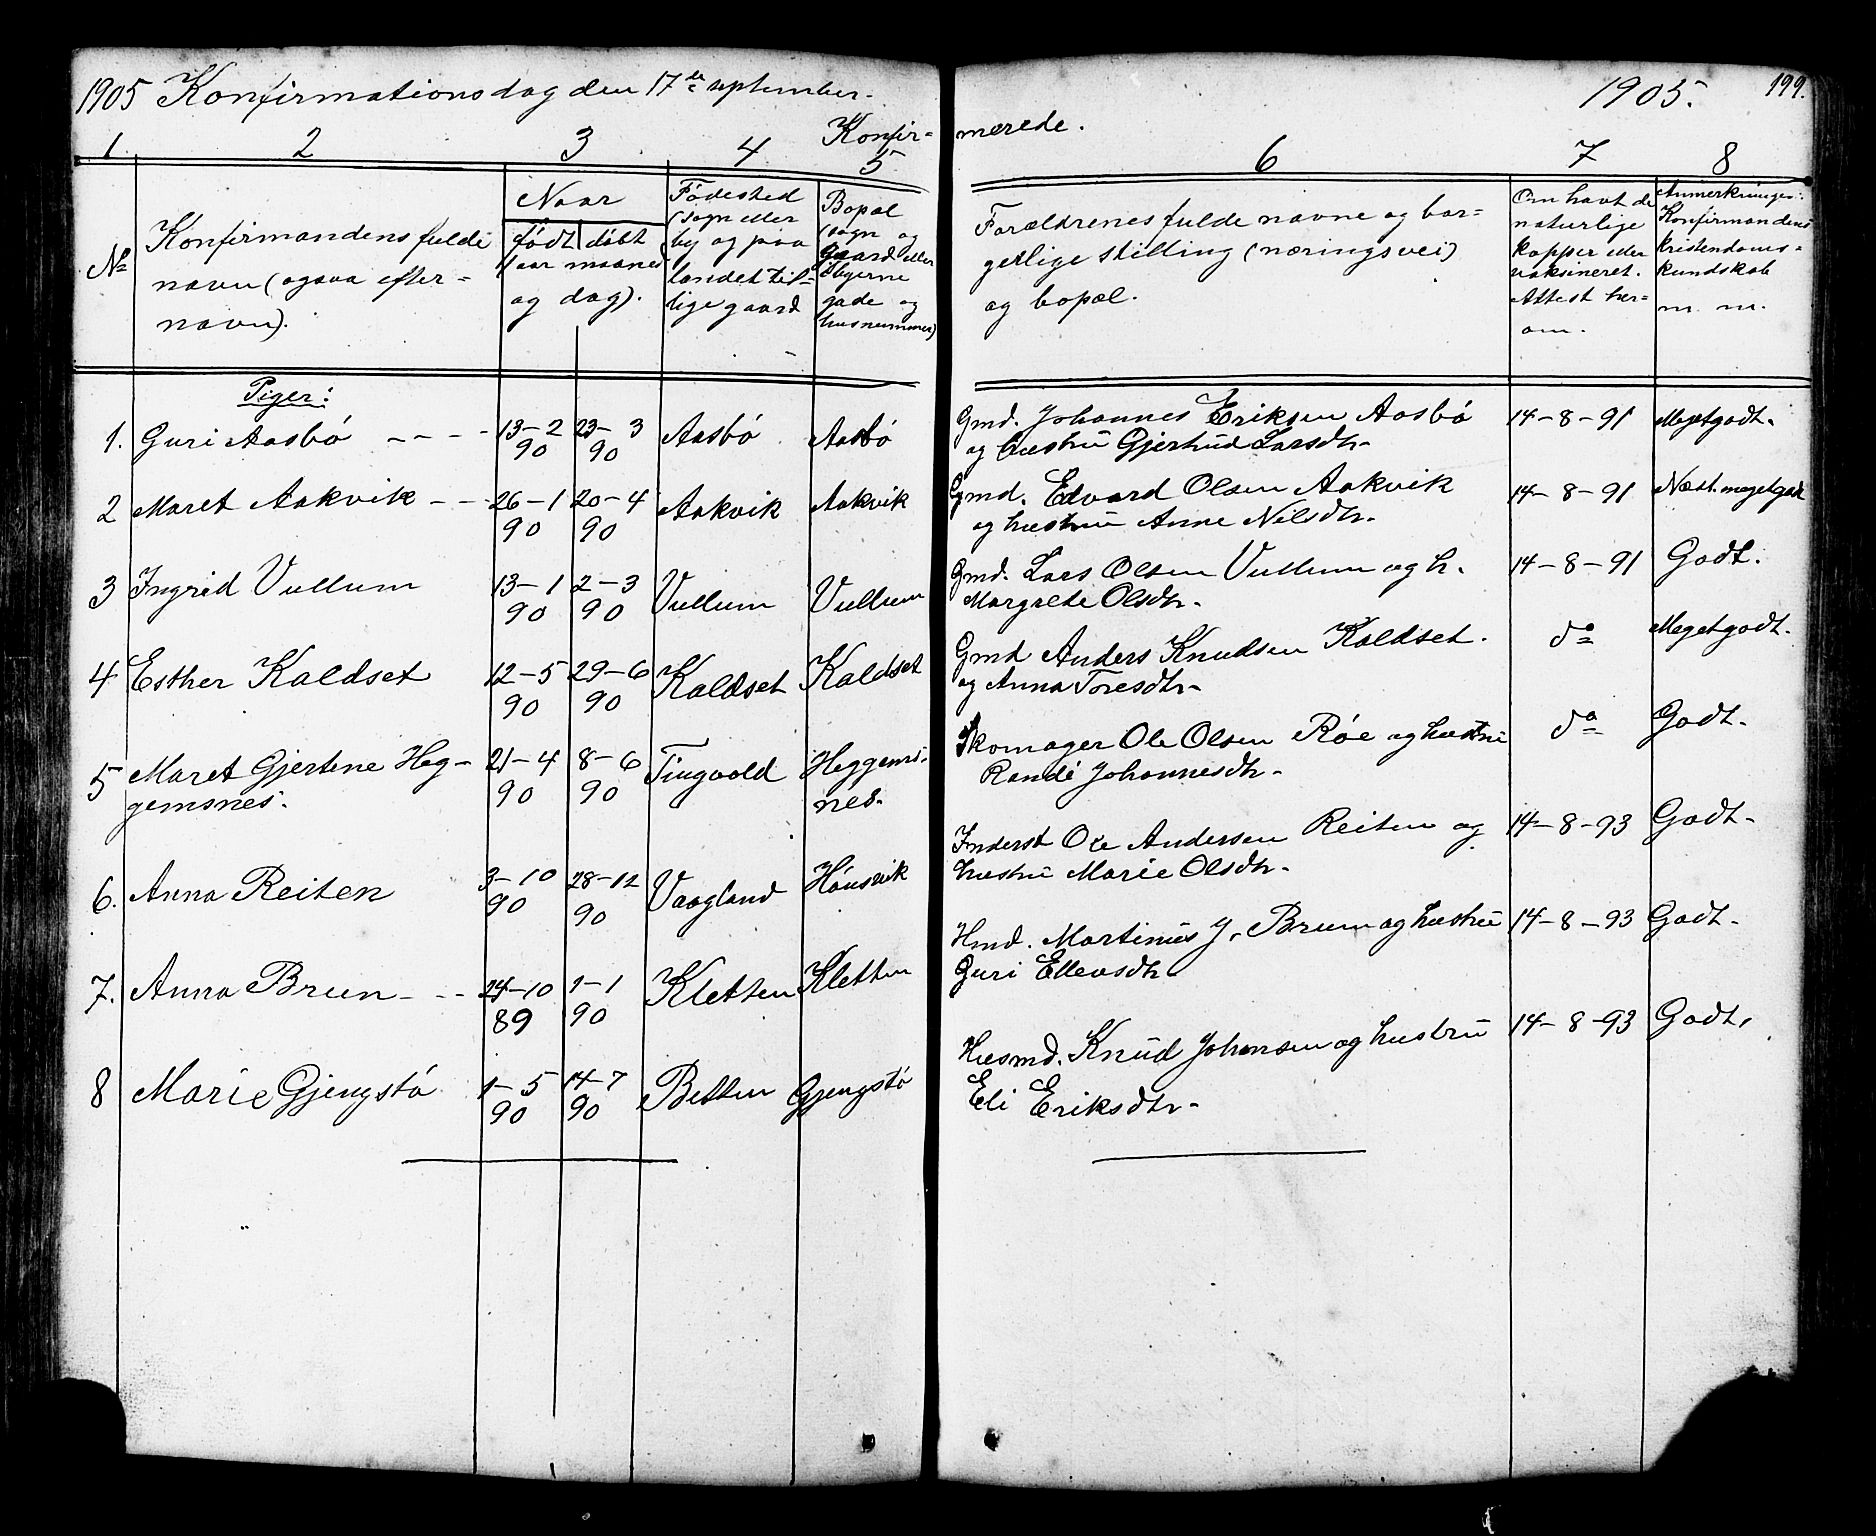 1905 Konfirmationsdag den 17de september.
Konfir-
1 2 3 4 5
No
Konfirmandens fulde
navn (ogsaa efter-
navn).
Naar
født døbt
(aar maaned
og dag).
Fødested
(sogn eller
by og paa
landet til-
lige gaard
Bopæl
(sogn og
gaard eller
i byerne
gade og
husnummer)
Piger:
1. Guri Aasbø - - - - 13-2 90 23-3 90 Aasbø Aasbø
2 Maret Aakvik - - - 26-1 90 20-4 90 Aakvik Aakvik
3 Ingrid Vullum 13-1 90 2-3 90 Vullum Vullum
4 Esther Kaldset 12-5 90 29-6 90 Kaldset Kaldset
5 Maret Gjertine Heg- 21-4 90 8-6 90 Tingvold Heggems-
gemsnes. nes.
6. Anna Reiten 3-10 90 28-12 90 Vaagland
7. Anna Brun - - - 24-10 89 1-1 90 Kletten Kletten
8 Marie Gjengstø 1-5 90 14-7 90 Betten Gjengstø
1905. 199.
merede.
6 7 8
Forældrenes fulde navne og bor-
gerlige stilling (næringsvei)
og bopæl.
Om havt de
naturlige
kopper eller
vaksineret.
Attest her-
om.
Anmerkninger:
Konfirmandens
kristendoms-
kundskab
m. m.
Gmd. Johannes Eriksen Aasbø 14-8-91 Megetgodt.
og hustru Gjertrud Larsdtr.
Gmd. Edvard Olsen Aakvik 14-8-91 Næst. megetgodt
og hustru Anne Nilsdtr.
Gmd. Lars Olsen Vullum og h. 14-8-91 Godt.
Margrete Olsdtr.
Gmd Anders Knudsen Kaldset. do Megetgodt.
og Anna Toresdtr.
Skomager Ole Olsen Røe og hustru do Godt.
Randi Johannesdtr.
Inderst Ole Andersen Reiten og 14-8-93 Godt.
hustru Marie Olsdtr.
Hmd. Martinus J. Brun og hustru 14-8-93 Godt.
Guri Ellevsdtr
Husmd. Knud Johansen og hustru 14-8-93 Godt.
Eli Eriksdtr.